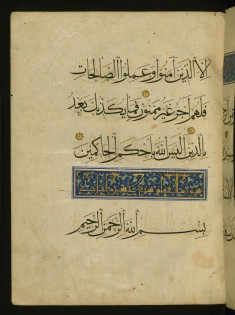 إلا الذين آمنوا وعملوا الصالحات
فلهم أجر غير ممنون فما يكذبك بعد
بالدين أليس الله بأحكم الحاكمين
بسم الله الرحمن الرحيم